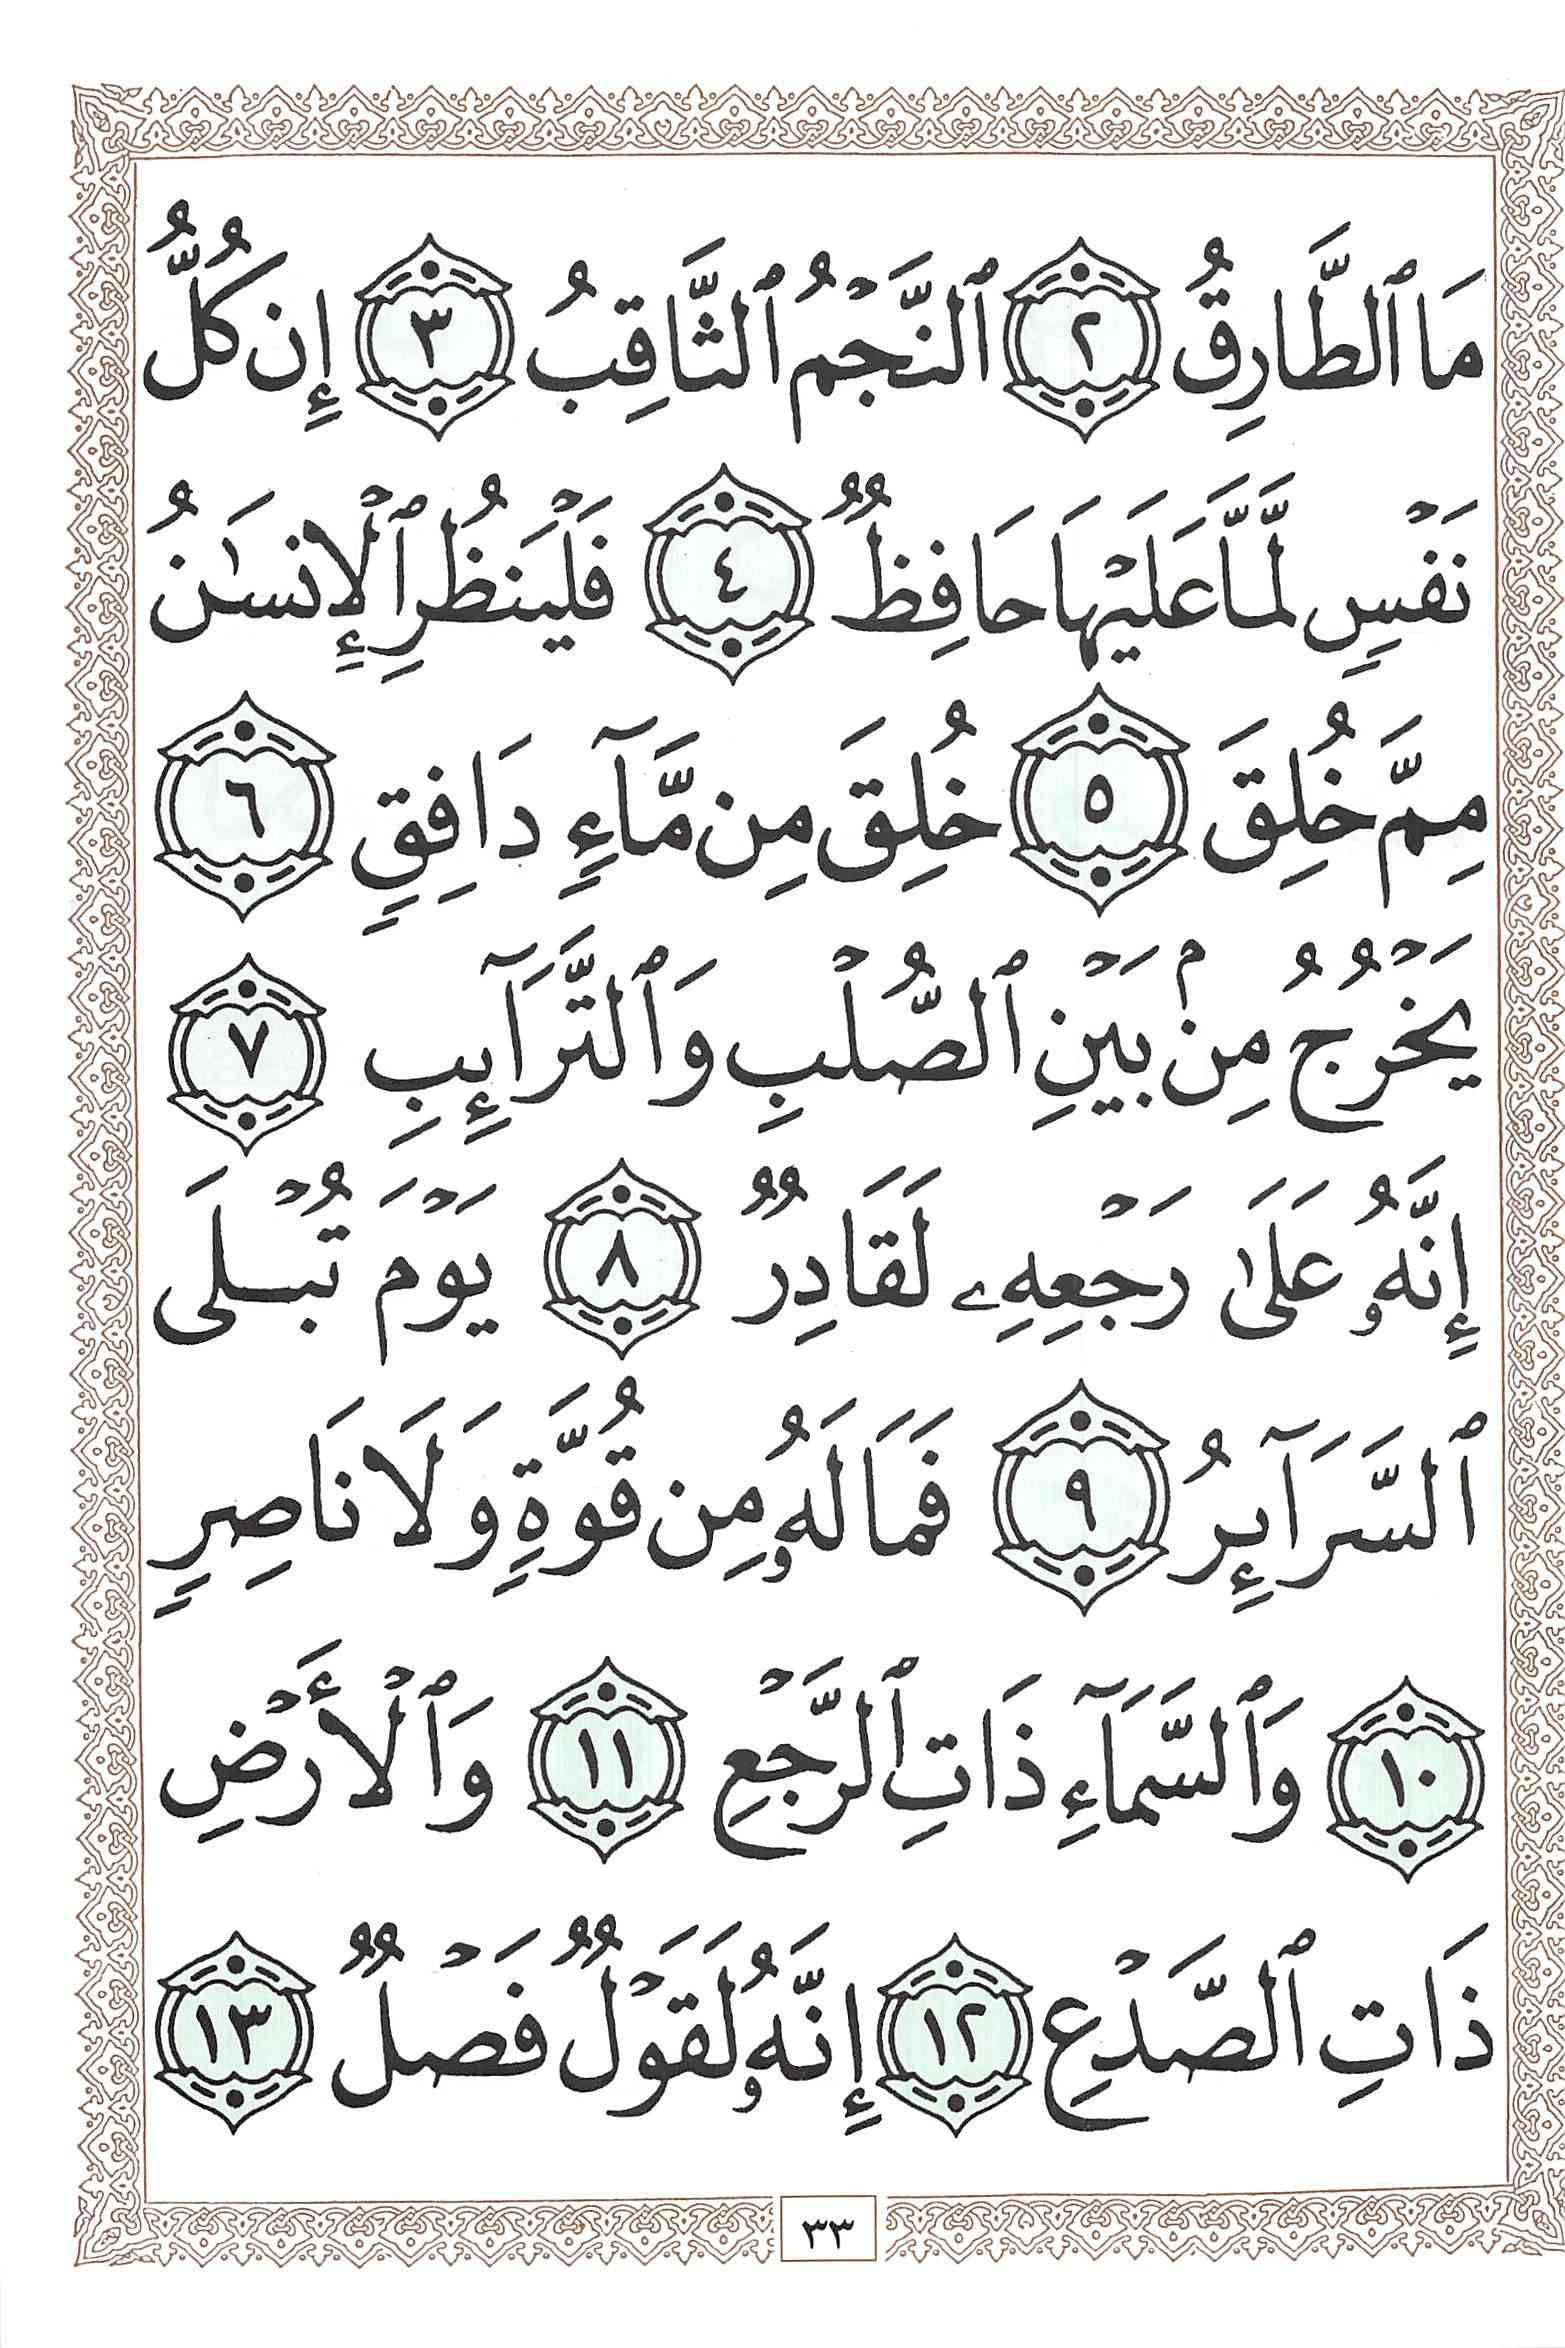 مَا ٱلطَّارِقُ ٢ ٱلنَّجْمُ ٱلثَّاقِبُ ٣ إِن كُلُّ
نَفْسٍ لَّمَّا عَلَيْهَا حَافِظٌ ٤ فَلْيَنظُرِ ٱلْإِنسَٰنُ
مِمَّ خُلِقَ ٥ خُلِقَ مِن مَّآءٍ دَافِقٍ ٦
يَخْرُجُ مِنۢ بَيْنِ ٱلصُّلْبِ وَٱلتَّرَآئِبِ ٧
إِنَّهُۥ عَلَىٰ رَجْعِهِۦ لَقَادِرٌ ٨ يَوْمَ تُبْلَى
ٱلسَّرَآئِرُ ٩ فَمَا لَهُۥ مِن قُوَّةٍ وَلَا نَاصِرٍ
١٠ وَٱلسَّمَآءِ ذَاتِ ٱلرَّجْعِ ١١ وَٱلْأَرْضِ
ذَاتِ ٱلصَّدْعِ ١٢ إِنَّهُۥ لَقَوْلٌ فَصْلٌ ١٣
٣٣